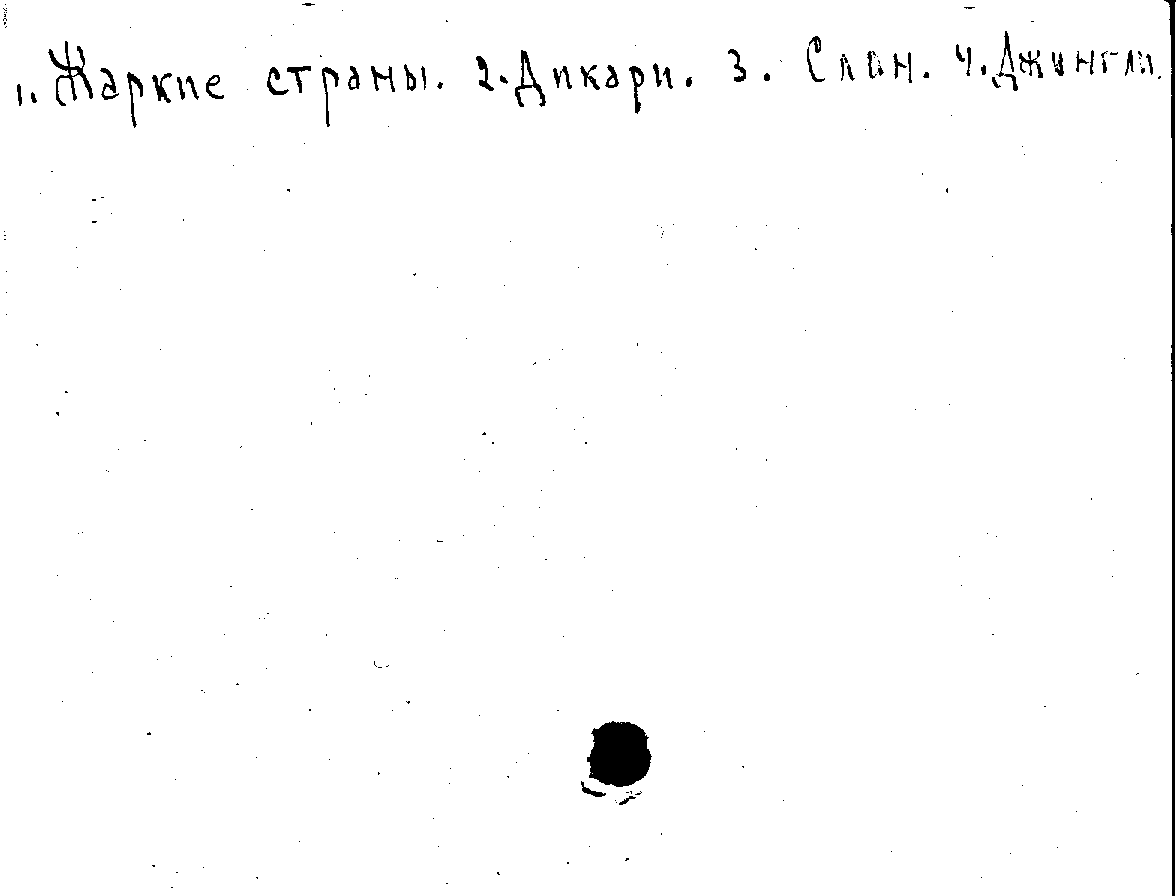 1. Жаркие страны. 2. Дикари. 3. Слон. 4. Джунгли.